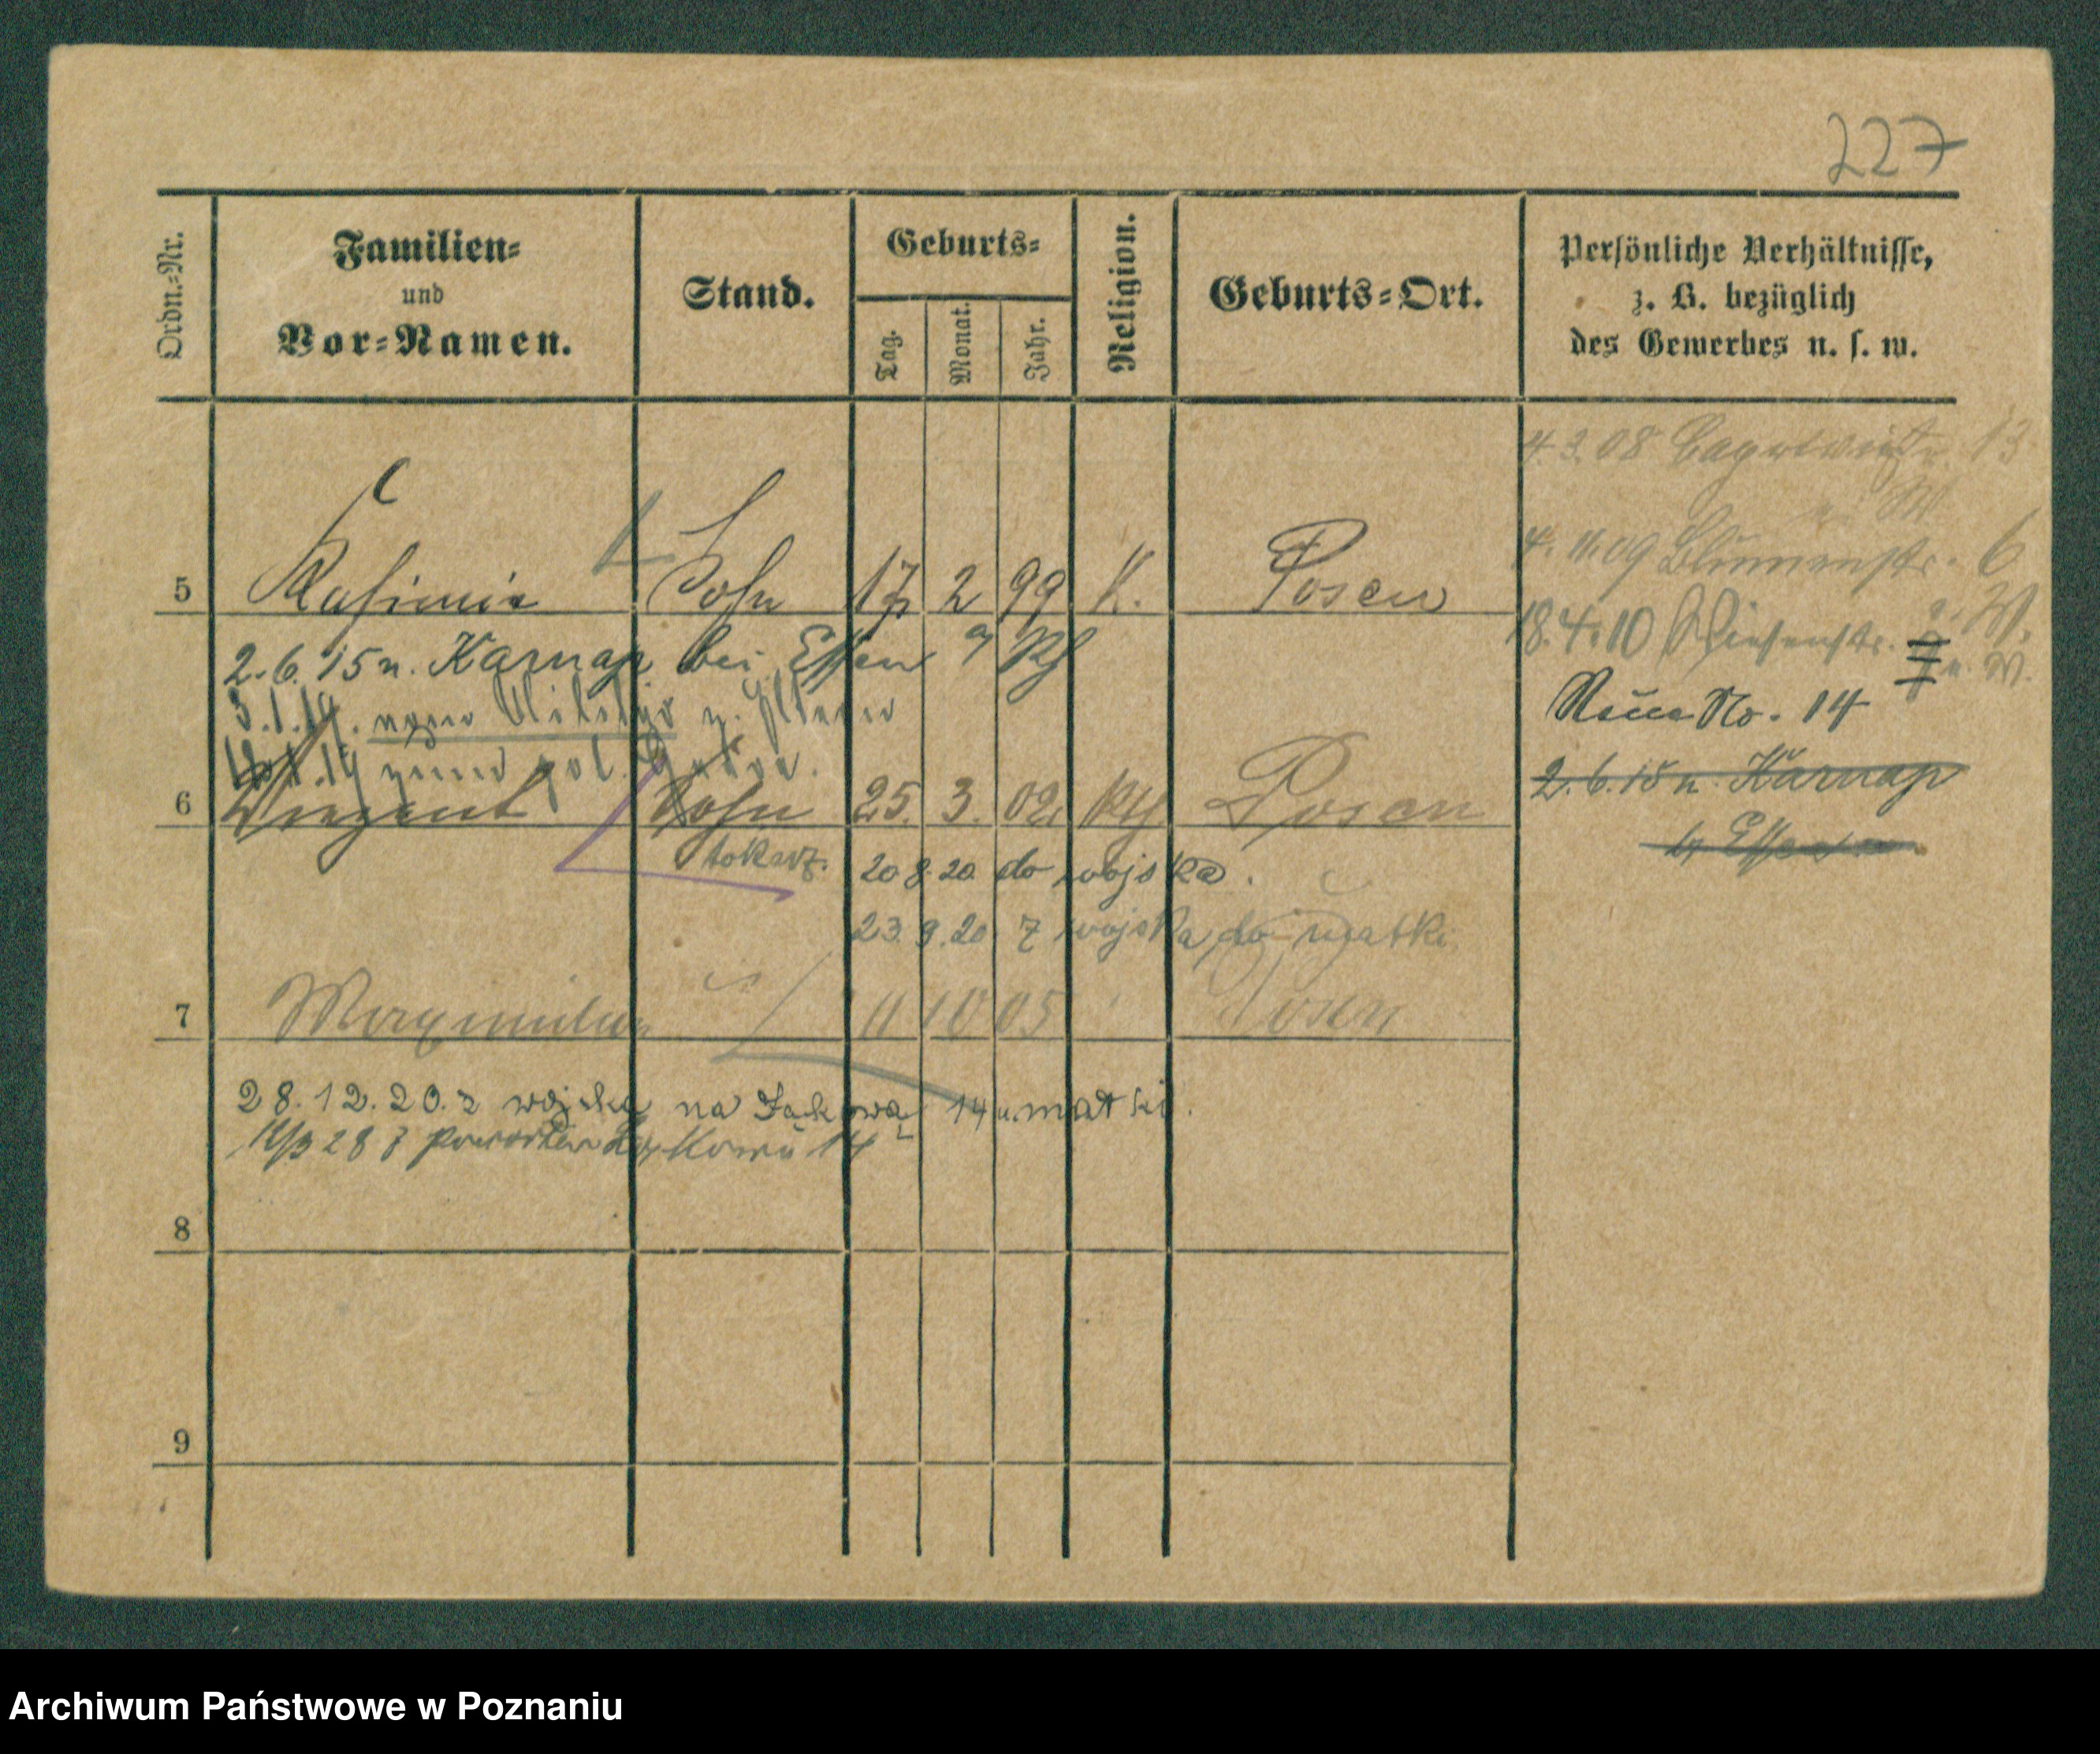 227
Ordn.-Nr.
Familien-
und
Vor-Namen.
Stand.
Geburts-
Tag.
Monat.
Jahr.
Religion.
Geburts-Ort.
Persönliche Verhältnisse,
z. B. bezüglich
des Gewerbes u. s. w.
4.3.08 13
4. 11. 09 Blumenstr. 6
18.4.10 Wiesenstr.
Neue No. 14
2.6.15 n. Karnap
b/ Essen
5 Kasimir Sohn 17 2 99 K. Posen
2.6.15 n. Karnap bei Essen a/ Rh
3.1.19. vom Militär z. Eltern
.1.19 zum pol.
6 Vinzent Sohn 25. 3. 02. Kth Posen
tokarz.
20 8. 20. do wojska.
23. 9. 20 z wojska do matki
7 Maximilian 11 10 05 Posen
28. 12. 20. z wojska na Łąkową 14 u. matki.
28 z powrotem Łąkowa 14
8
9
Archiwum Państwowe w Poznaniu